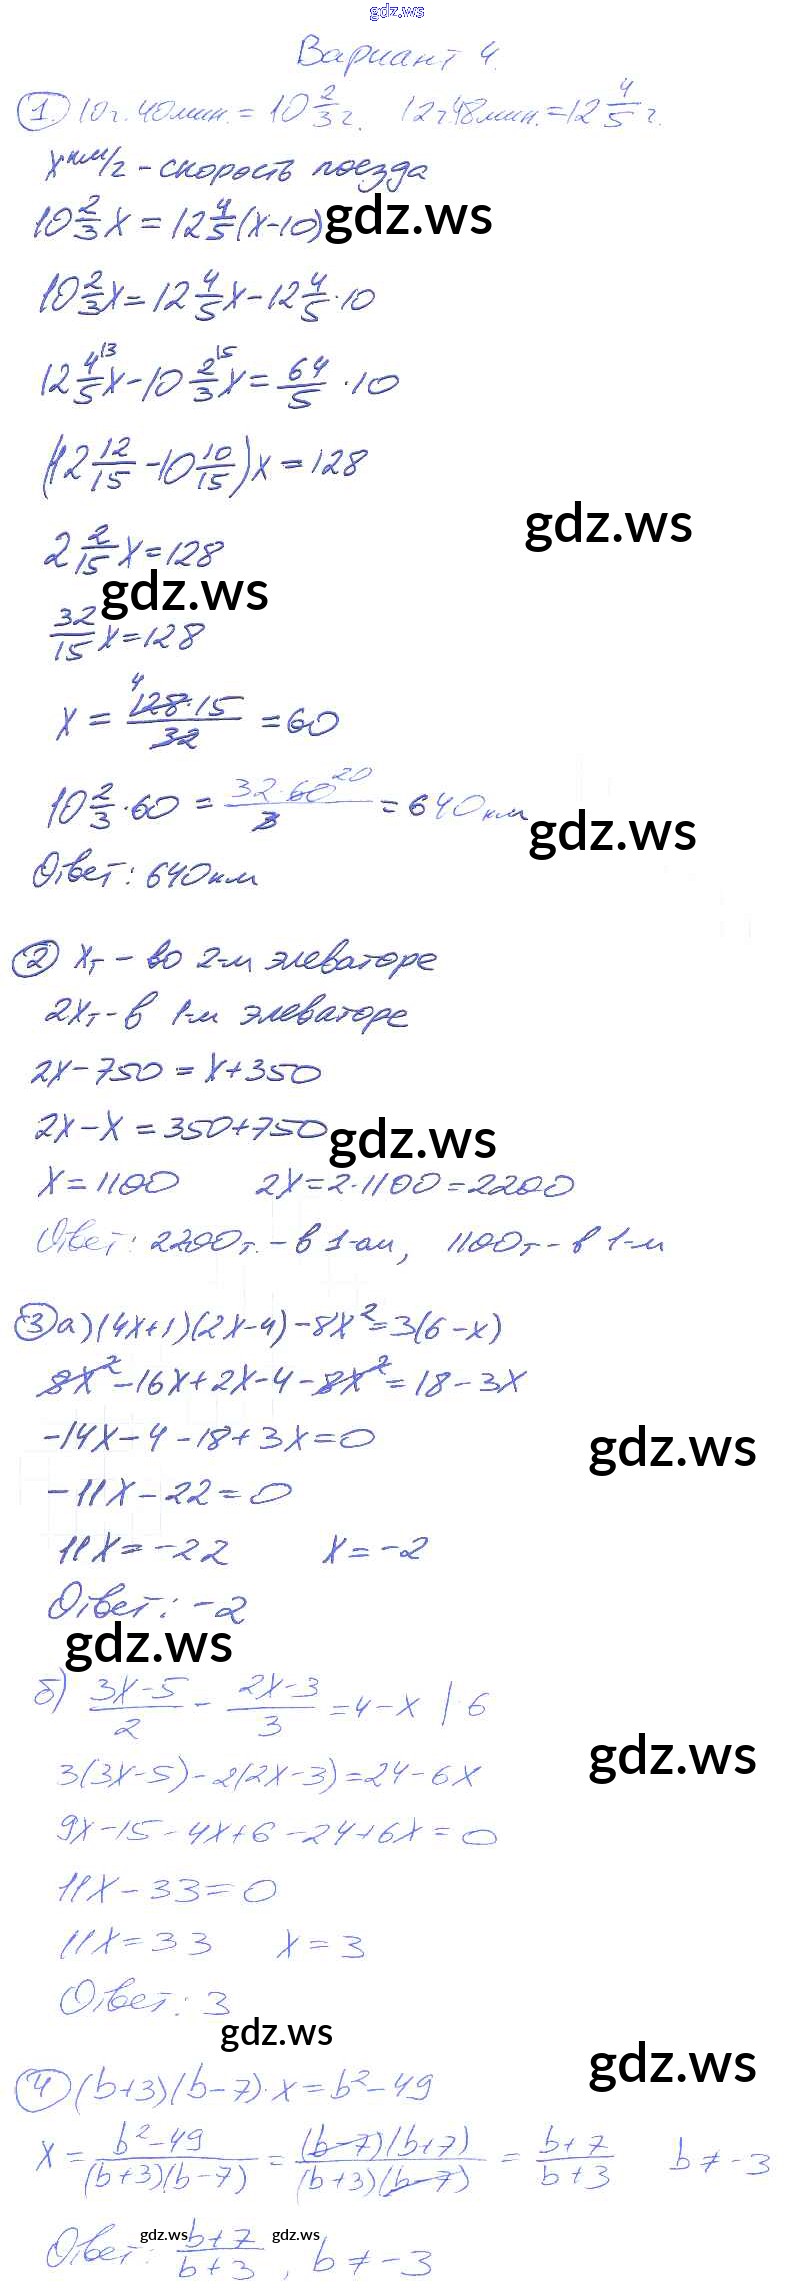 gdz.ws
Вариант 4.
1. 10ч. 40мин. = 10 2/3 ч. 12ч.48мин. = 12 4/5 ч.
x км/ч - скорость поезда
10 2/3 x = 12 4/5 (x-10) gdz.ws
10 2/3 x = 12 4/5 x - 12 4/5 · 10
12 4/5 |3 x - 10 2/3 |5 x = 64/5 · 10
(12 12/15 - 10 10/15) x = 128
gdz.ws
2 2/15 x = 128
gdz.ws
32/15 x = 128
x = 4 128·15/32 = 60
10 2/3 · 60 = 32·60 20/3 = 640 км
gdz.ws
Ответ: 640 км
2 xт - во 2-м элеваторе
2xт - в 1-м элеваторе
2x - 750 = x + 350
2x - x = 350 + 750 gdz.ws
x = 1100 2x = 2·1100 = 2200
Ответ: 2200т. - в 1-ом, 1100т - в 1-м
3 а) (4x+1)(2x-4) - 8x² = 3(6-x)
8x² - 16x + 2x - 4 - 8x² = 18 - 3x
-14x - 4 - 18 + 3x = 0 gdz.ws
-11x - 22 = 0
11x = -22 x = -2
Ответ: -2
gdz.ws
б) 3x-5/2 - 2x-3/3 = 4 - x | · 6
gdz.ws
3(3x-5) - 2(2x-3) = 24 - 6x
9x - 15 - 4x + 6 - 24 + 6x = 0
11x - 33 = 0
11x = 33 x = 3
Ответ: 3
gdz.ws
gdz.ws
4 (b+3)(b-7)·x = b² - 49
x = b²-49/(b+3)(b-7) = (b-7)(b+7)/(b+3)(b-7) = b+7/b+3 b ≠ -3
Ответ: b+7/b+3, b ≠ -3
gdz.ws gdz.ws